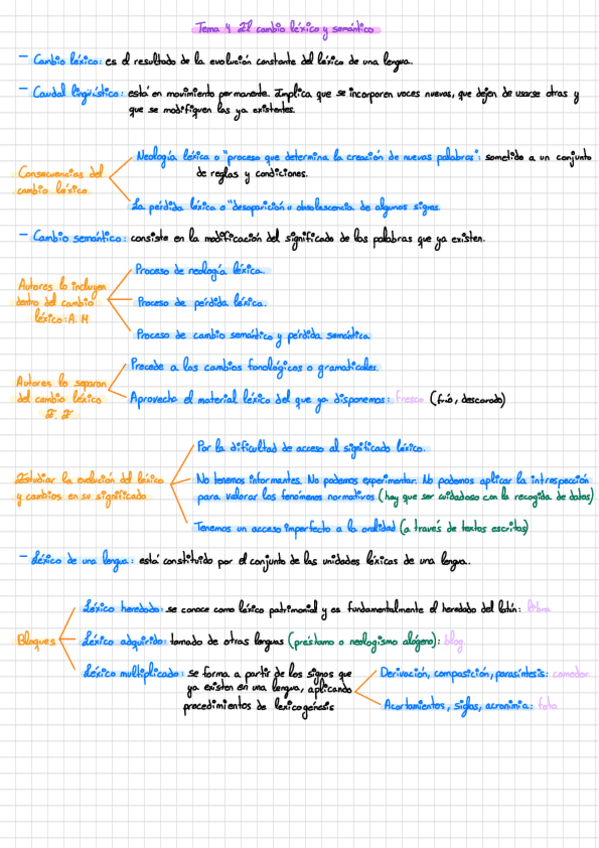 Tema 4 El cambio léxico y semántico
- Cambio léxico: es el resultado de la evolución constante del léxico de una lengua.
- Caudal lingüístico: está en movimiento permanente. Implica que se incorporen voces nuevas, que dejen de usarse otras y
que se modifiquen las ya existentes.
Consecuencias del
cambio léxico
Neología léxica o "proceso que determina la creación de nuevas palabras": sometido a un conjunto
de reglas y condiciones.
La pérdida léxica o "desaparición u obsolescencia de algunos signos.
- Cambio semántico: consiste en la modificación del significado de las palabras que ya existen.
Autores lo incluyen
dentro del cambio
léxico: A. M
Proceso de neología léxica.
Proceso de pérdida léxica.
Proceso de cambio semántico y pérdida semántica
Autores lo separan
del cambio léxico
Precede a los cambios fonológicos o gramaticales.
Aprovecha el material léxico del que ya disponemos: fresco (frío, descarado)
Estudiar la evolución del léxico
y cambios en se significado
Por la dificultad de acceso al significado léxico.
No tenemos informantes. No podemos experimentar. No podemos aplicar la introspección
para valorar los fenómenos normativos (hay que ser cuidadoso con la recogida de datos)
Tenemos un acceso imperfecto a la oralidad (a través de textos escritos)
- Léxico de una lengua: está constituido por el conjunto de las unidades léxicas de una lengua.
Bloques
Léxico heredado: se conoce como léxico patrimonial y es fundamentalmente el heredado del latín:
Léxico adquirido: tomado de otras lenguas (préstamo o neologismo alógeno): blog
Léxico multiplicado: se forma a partir de los signos que
ya existen en una lengua, aplicando
procedimientos de lexicogénesis
Derivación, composición, parasíntesis: comedor
Acortamientos, siglas, acronimia: foto